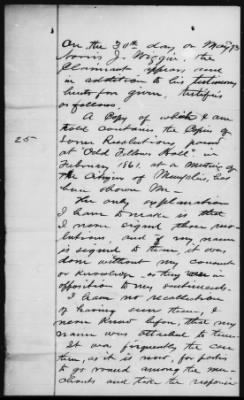 On the 30th day, on May 73
Norris J. Wiggins, the
Claimant appears and
in addition to his testimony
heretofore given, testifies
as follows.
A Copy of which I am
told contains the Copies of
some Resolutions, passed
25
at "Odd Fellows Hall", in
February '61. at a Meeting of
the Citizens of Memphis, has
been shown Me—
The only explanation
I have to make is that
I never signed those reso-
lutions, and if my name
is signed to them, it was
done without my consent
or knowledge, as they were in
opposition to my sentiments.
I have no recollection
of having seen them, &
never knew before, that my
name was attached to them.
It was frequently the case
then, as it is now, for parties
to go round among the mer-
chants and take the